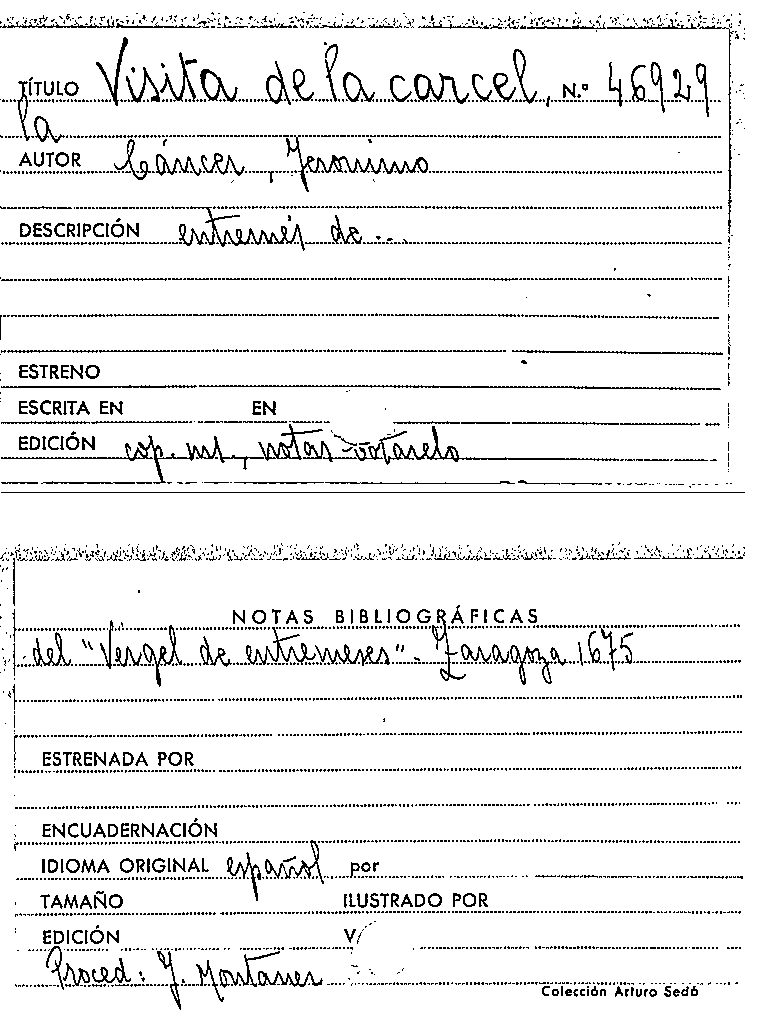 TÍTULO Visita de la carcel, N.º 46929
la
AUTOR Cáncer, Jeronimo
DESCRIPCIÓN entremés de...
ESTRENO
ESCRITA EN EN
EDICIÓN cop. ms., notas cotarelo
NOTAS BIBLIOGRÁFICAS
del "Vergel de entremeses". Zaragoza 1675
ESTRENADA POR
ENCUADERNACIÓN
IDIOMA ORIGINAL español por
TAMAÑO ILUSTRADO POR
EDICIÓN V
Proced: J. Montaner
Colección Arturo Sedó